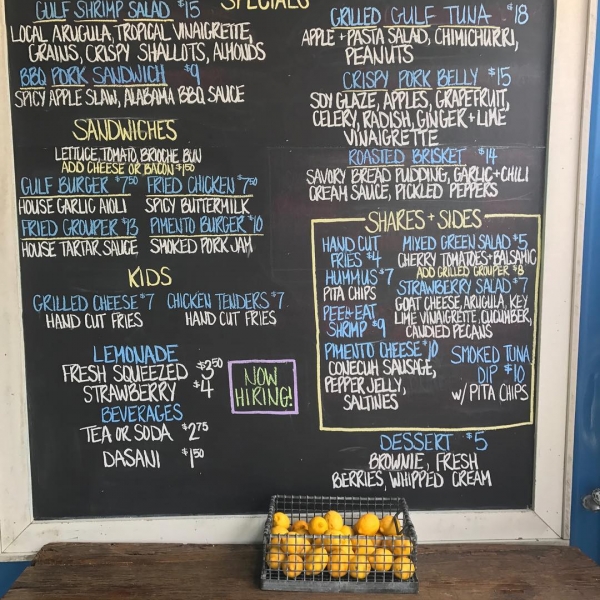 SPECIALS
GULF SHRIMP SALAD $15
LOCAL ARUGULA, TROPICAL VINAIGRETTE,
GRAINS, CRISPY SHALLOTS, ALMONDS
BBQ PORK SANDWICH $9
SPICY APPLE SLAW, ALABAMA BBQ SAUCE
SANDWICHES
LETTUCE, TOMATO, BRIOCHE BUN
ADD CHEESE OR BACON $1.50
GULF BURGER $7.50 FRIED CHICKEN $7.50
HOUSE GARLIC AIOLI SPICY BUTTERMILK
FRIED GROUPER $13 PIMENTO BURGER $10
HOUSE TARTAR SAUCE SMOKED PORK JAM
KIDS
GRILLED CHEESE $7 CHICKEN TENDERS $7
HAND CUT FRIES HAND CUT FRIES
LEMONADE
FRESH SQUEEZED $2.50
STRAWBERRY $4
BEVERAGES
TEA OR SODA $2.75
DASANI $1.50
NOW
HIRING!
GRILLED GULF TUNA $18
APPLE + PASTA SALAD, CHIMICHURRI,
PEANUTS
CRISPY PORK BELLY $15
SOY GLAZE, APPLES, GRAPEFRUIT,
CELERY, RADISH, GINGER + LIME
VINAIGRETTE
ROASTED BRISKET $14
SAVORY BREAD PUDDING, GARLIC + CHILI
CREAM SAUCE, PICKLED PEPPERS
SHARES + SIDES
HAND CUT
FRIES $4
HUMMUS $7
PITA CHIPS
PEEL + EAT
SHRIMP $9
PIMENTO CHEESE $10
CONECUH SAUSAGE,
PEPPER JELLY,
SALTINES
MIXED GREEN SALAD $5
CHERRY TOMATOES + BALSAMIC
ADD GRILLED GROUPER $8
STRAWBERRY SALAD $7
GOAT CHEESE, ARUGULA, KEY
LIME VINAIGRETTE, CUCUMBER,
CANDIED PECANS
SMOKED TUNA
DIP $10
W/ PITA CHIPS
DESSERT $5
BROWNIE, FRESH
BERRIES, WHIPPED CREAM